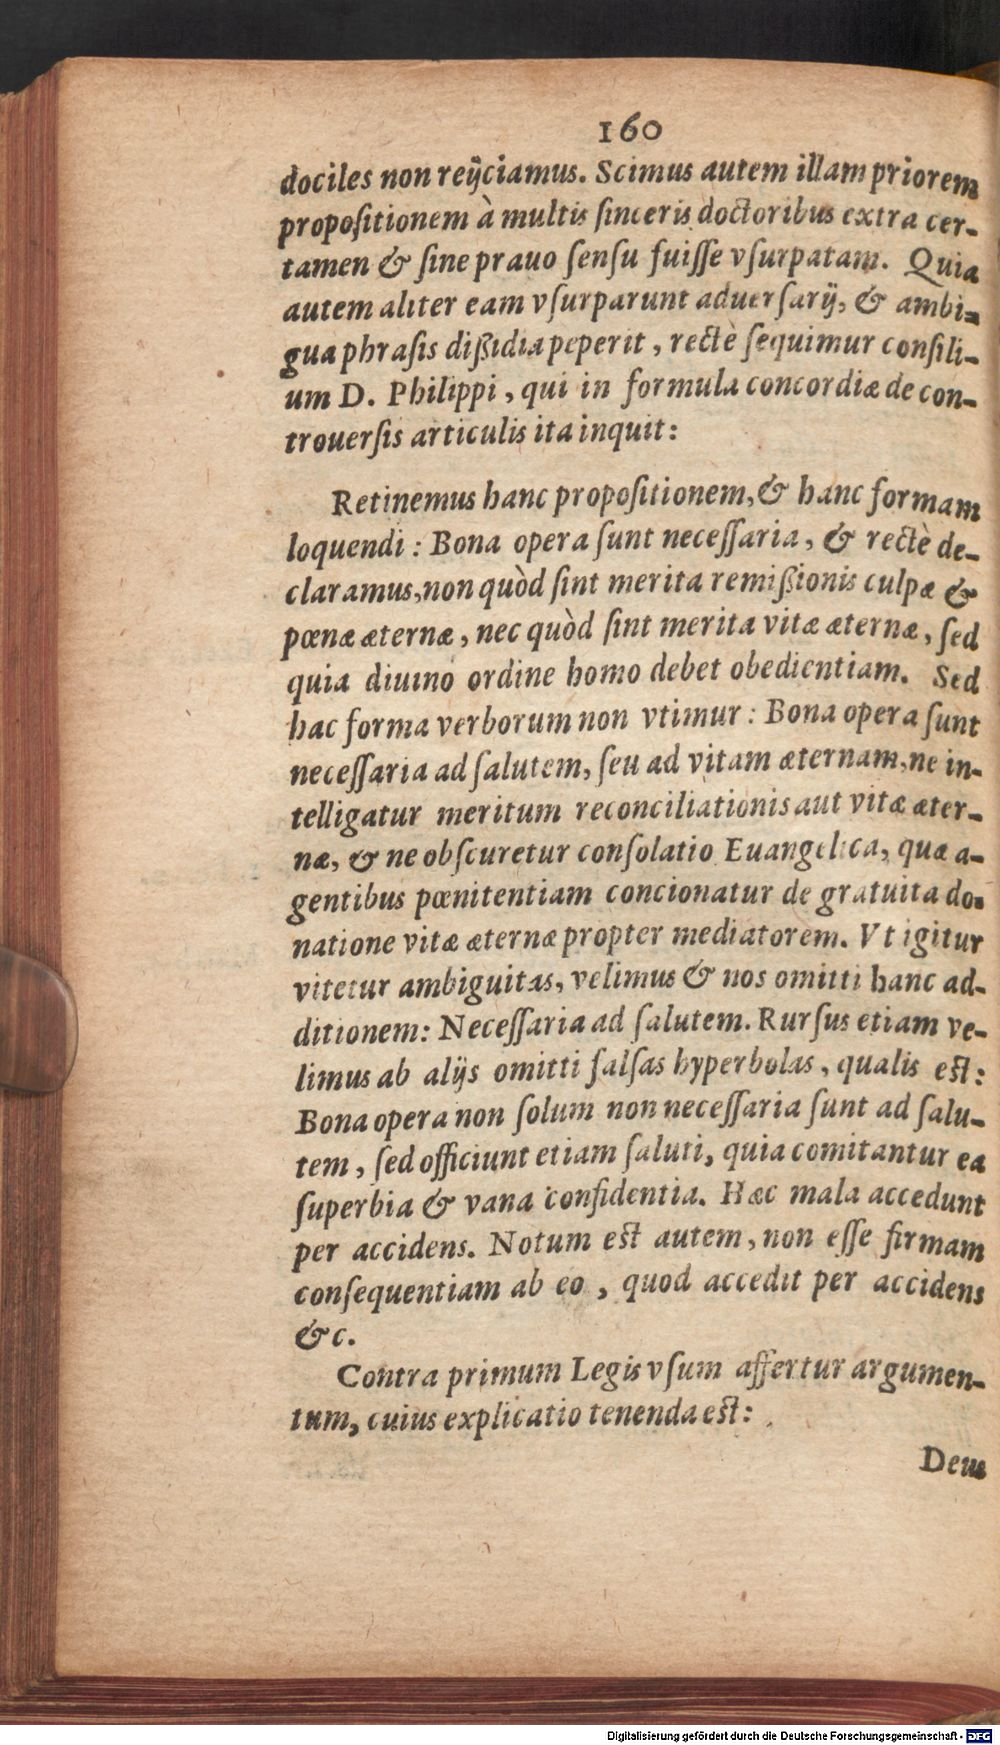 160
dociles non reijciamus. Scimus autem illam priorem
propoſitionem à multis ſinceris doctoribus extra cer-
tamen & ſine prauo ſenſu fuiſſe vſurpatam. Quia
autem aliter eam vſurparunt aduerſarij, & ambi-
gua phraſis dißidia peperit, rectè ſequimur conſili-
um D. Philippi, qui in formula concordiæ de con-
trouerſis articulis ita inquit:
Retinemus hanc propoſitionem, & hanc formam
loquendi: Bona opera ſunt neceſſaria, & rectè de-
claramus, non quòd ſint merita remißionis culpæ &
pœnæ æternæ, nec quòd ſint merita vitæ æternæ, ſed
quia diuino ordine homo debet obedientiam. Sed
hac forma verborum non vtimur: Bona opera ſunt
neceſſaria ad ſalutem, ſeu ad vitam æternam, ne in-
telligatur meritum reconciliationis aut vitæ æter-
næ, & ne obſcuretur conſolatio Euangelica, quæ a-
gentibus pœnitentiam concionatur de gratuita do-
natione vitæ æternæ propter mediatorem. Vt igitur
vitetur ambiguitas, velimus & nos omitti hanc ad-
ditionem: Neceſſaria ad ſalutem. Rurſus etiam ve-
limus ab alijs omitti falſas hyperbolas, qualis eſt:
Bona opera non ſolum non neceſſaria ſunt ad ſalu-
tem, ſed officiunt etiam ſaluti, quia comitantur ea
ſuperbia & vana confidentia. Hæc mala accedunt
per accidens. Notum eſt autem, non eſſe firmam
conſequentiam ab eo, quod accedit per accidens
&c.
Contra primum Legis vſum affertur argumen-
tum, cuius explicatio tenenda eſt:
Deus
Digitalisierung gefördert durch die Deutsche Forschungsgemeinschaft - DFG